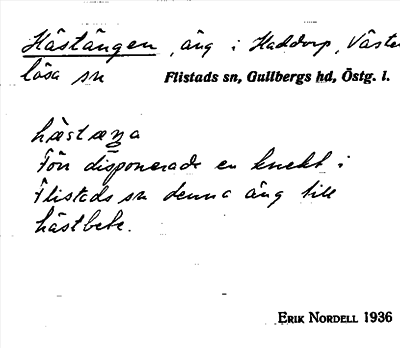 Hästängen, äng i Haddorp, Väster
lösa sn Flistads sn, Gullbergs hd, Östg. l.
hæstæŋa
Förr disponerade en knekt i
Flistads sn denna äng till
hästbete.
ERIK NORDELL 1936